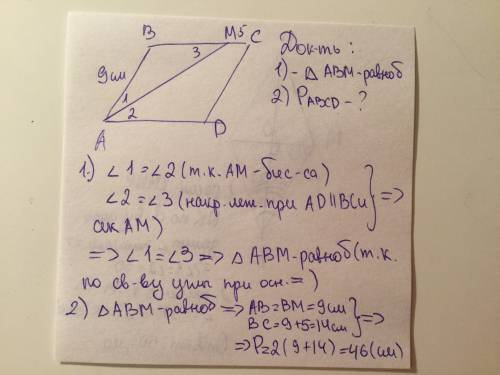 B M 5 C
3
9см
1
2
A D
Док-ть:
1) - △ ABM - равноб
2) PABCD - ?
1.) ∠1 = ∠2 (т.к. AM - бис-са)
∠2 = ∠3 (накр. леж. при AD || BC и
сек AM) } =>
=> ∠1 = ∠3 => △ ABM - равноб (т.к.
по св-ву углы при осн. =)
2) △ ABM - равноб => AB = BM = 9 см
BC = 9 + 5 = 14 см } =>
=> P = 2 (9 + 14) = 46 (см)